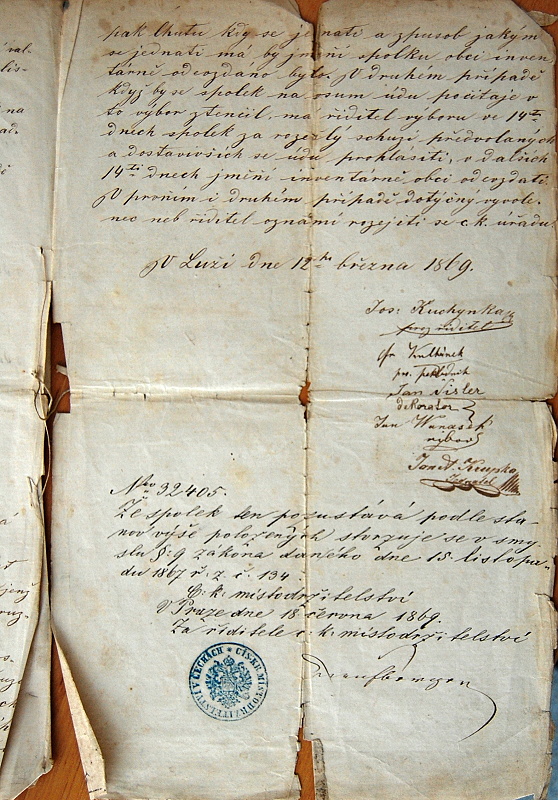 pak lhutu kdy se jednati a zpusob jakým
se jednati má by jmění spolku obci inven-
tárně odevzdano bylo. V druhém připadě
když by se spolek na osum údu počítaje v
to výbor ztenčil, má ředitel výboru ve 14ti
dnech spolek za rozešlý schuzí předvolaných
a dostavivších se údu prohlásiti, v dalších
14ti dnech jmění inventárně obci odevzdati
V prvním i druhém připadě dotýčný vyvole-
nec neb ředitel oznámí rozejití se c. k. úřadu
V Luži dne 12ho března 1869.
Jos: Kuchynka
proz ředitel
pokladník
Jan Tisler
dekorator
Jan
výbor
Krupka
Jednatel
Nro 32405.
Že spolek ten pozustává podle sta-
nov výše položených stvrzuje se v smy
slu §: 9 zákona daného dne 15. listopa-
du 1867 ř. z. č. 134.
C. k. místodržitelství
V Praze dne 18 června 1869.
Za ředitele c. k. místodržitelství
CÍS. KR. MÍSTODRŽITELSTVÍ V ČECHÁCH